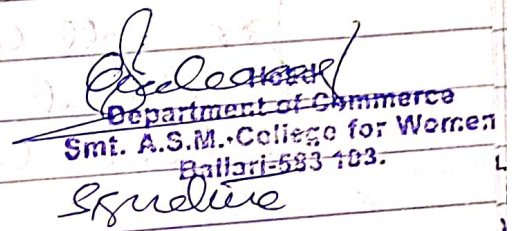 Head
Department of Commerce
Smt. A.S.M. College for Women
Ballari-583 103.
Signature